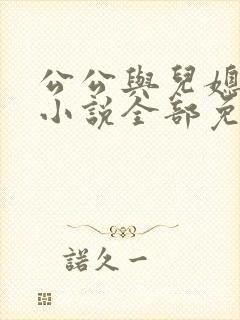 公公與兒媳
小説全部免
諾久一